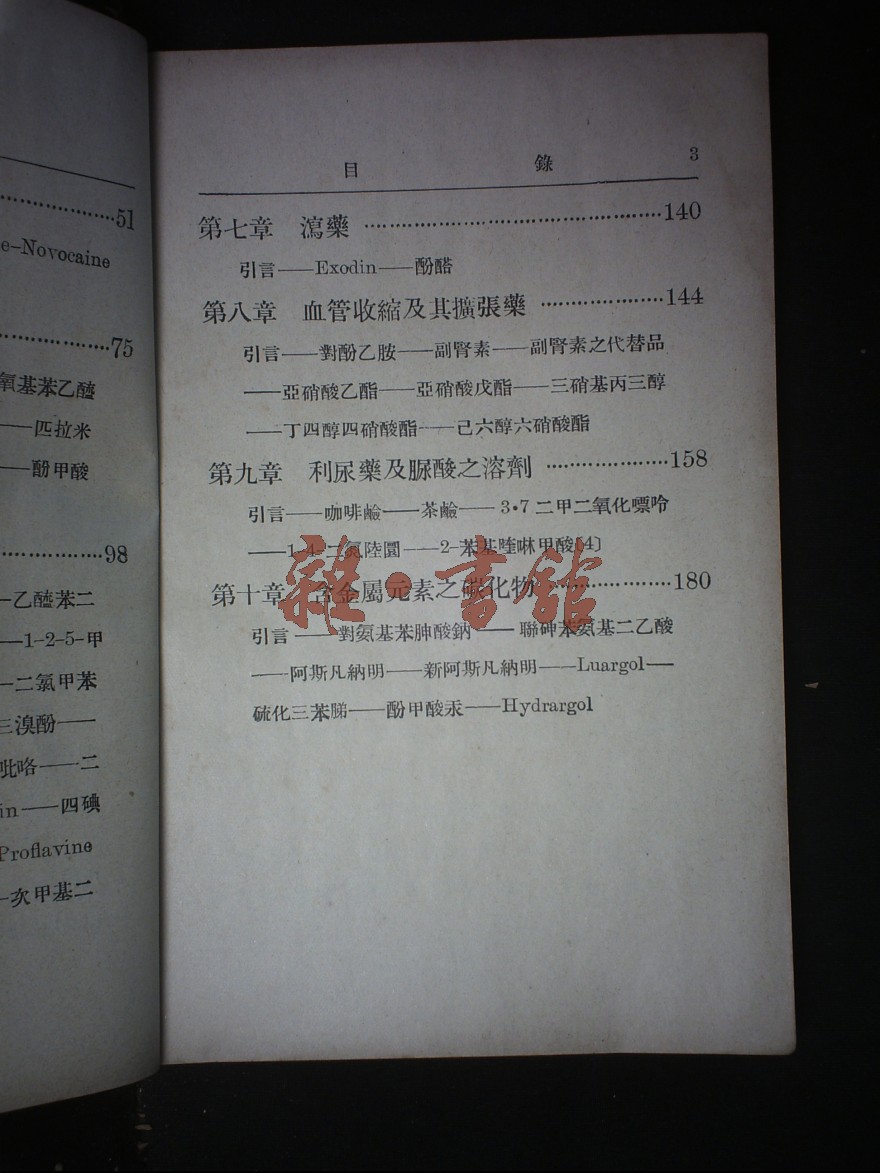 51
e-Novocaine
75
氧基苯乙醯
——匹拉米
——酚甲酸
98
-乙醯苯二
——1-2-5-甲
—二氯甲苯
三溴酚——
吡咯——二
in——四碘
Proflavine
-次甲基二
目 錄 3
第七章 瀉藥 ………………………………………140
引言——Exodin——酚醛
第八章 血管收縮及其擴張藥 …………………144
引言——對酚乙胺——副腎素——副腎素之代替品
——亞硝酸乙酯——亞硝酸戊酯——三硝基丙三醇
——丁四醇四硝酸酯——己六醇六硝酸酯
第九章 利尿藥及脲酸之溶劑 …………………158
引言——咖啡鹼——茶鹼——3·7二甲二氧化嘌呤
——1-4-二氮陸圜——2-苯基喹啉甲酸〔4〕
第十章 含金屬元素之碳化物 …………………180
引言——對氨基苯胂酸鈉——聯砷苯氨基二乙酸
——阿斯凡納明——新阿斯凡納明——Luargol—
硫化三苯䏲——酚甲酸汞——Hydrargol
雜·書館